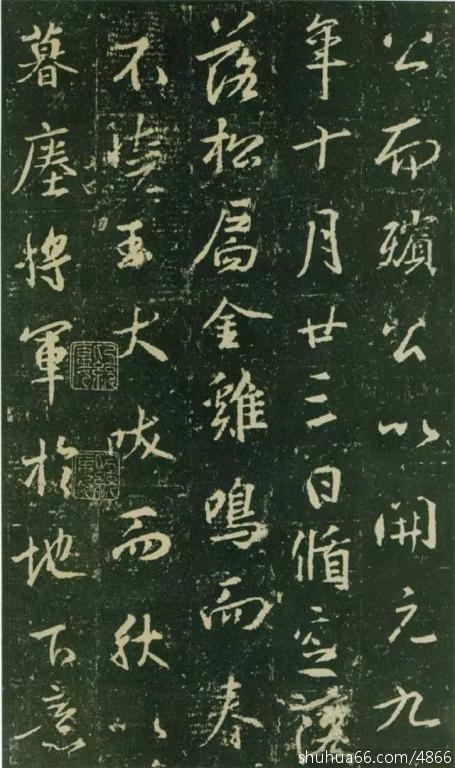 公而殯公以開元九
年十月廿三日
落松扃金雞鳴而春
不曉玉犬吠而秋以
暮塵將軍於地
shuhua66.com/4866